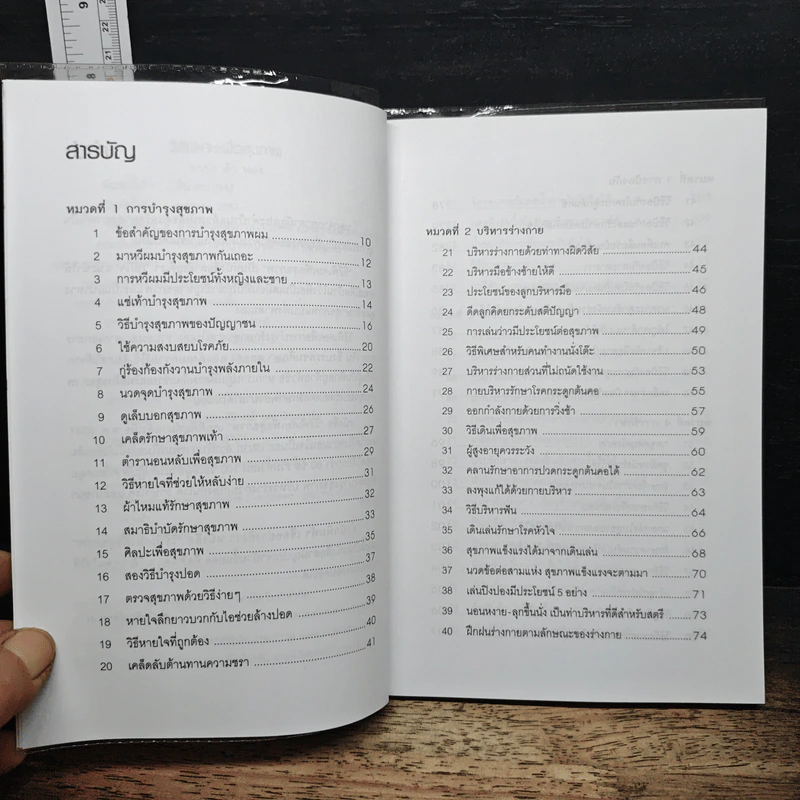 9
8
22
21
สารบัญ
หมวดที่ 1 การบำรุงสุขภาพ
1 ข้อสำคัญของการบำรุงสุขภาพผม 10
2 มาหวีผมบำรุงสุขภาพกันเถอะ 12
3 การหวีผมมีประโยชน์ทั้งหญิงและชาย 13
4 แช่เท้าบำรุงสุขภาพ 14
5 วิธีบำรุงสุขภาพของปัญญาชน 16
6 ใช้ความสงบสยบโรคภัย 20
7 กู่ร้องก้องกังวานบำรุงพลังภายใน 22
8 นวดจุดบำรุงสุขภาพ 24
9 ดูเล็บบอกสุขภาพ 26
10 เคล็ดรักษาสุขภาพเท้า 27
11 ตำรานอนหลับเพื่อสุขภาพ 29
12 วิธีหายใจที่ช่วยให้หลับง่าย 31
13 ผ้าไหมแท้รักษาสุขภาพ 32
14 สมาธิบำบัดรักษาสุขภาพ 33
15 ศิลปะเพื่อสุขภาพ 35
16 สองวิธีบำรุงปอด 37
17 ตรวจสุขภาพด้วยวิธีง่ายๆ 38
18 หายใจลึกยาวบวกกับไอช่วยล้างปอด 39
19 วิธีหายใจที่ถูกต้อง 40
20 เคล็ดลับต้านทานความชรา 41
หมวดที่ 2 บริหารร่างกาย
21 บริหารร่างกายด้วยท่าทางผิดวิสัย 44
22 บริหารมือข้างซ้ายให้ดี 45
23 ประโยชน์ของลูกบริหารมือ 46
24 ดีดลูกคิดยกระดับสติปัญญา 48
25 การเล่นว่าวมีประโยชน์ต่อสุขภาพ 49
26 วิธีพิเศษสำหรับคนทำงานนั่งโต๊ะ 50
27 บริหารร่างกายส่วนที่ไม่ถนัดใช้งาน 53
28 กายบริหารรักษาโรคกระดูกต้นคอ 55
29 ออกกำลังกายด้วยการวิ่งช้า 57
30 วิธีเดินเพื่อสุขภาพ 59
31 ผู้สูงอายุควรระวัง 60
32 คลานรักษาอาการปวดกระดูกต้นคอได้ 62
33 ลงพุงแก้ได้ด้วยกายบริหาร 63
34 วิธีบริหารฟัน 64
35 เดินเล่นรักษาโรคหัวใจ 66
36 สุขภาพแข็งแรงได้มาจากเดินเล่น 68
37 นวดข้อต่อสามแห่ง สุขภาพแข็งแรงจะตามมา 70
38 เล่นปิงปองมีประโยชน์ 5 อย่าง 71
39 นอนหงาย-ลุกขึ้นนั่ง เป็นท่าบริหารที่ดีสำหรับสตรี 73
40 ฝึกฝนร่างกายตามลักษณะของร่างกาย 74